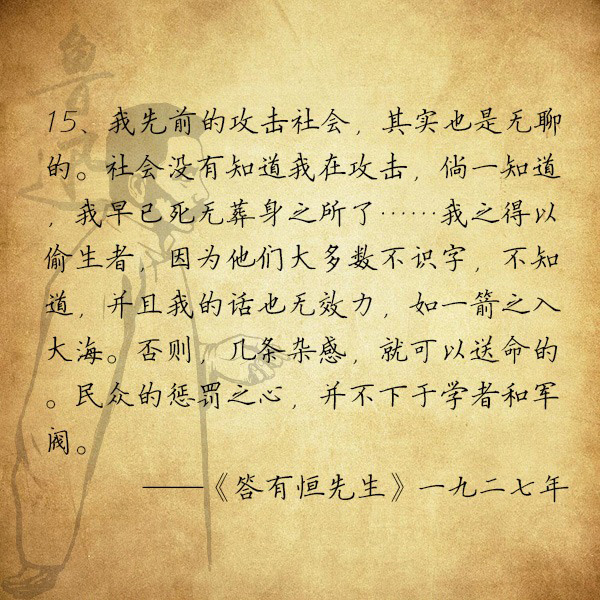 鲁迅
15、我先前的攻击社会，其实也是无聊
的。社会没有知道我在攻击，倘一知道
，我早已死无葬身之所了……我之得以
偷生者，因为他们大多数不识字，不知
道，并且我的话也无效力，如一箭之入
大海。否则，几条杂感，就可以送命的
。民众的惩罚之心，并不下于学者和军
阀。
——《答有恒先生》一九二七年